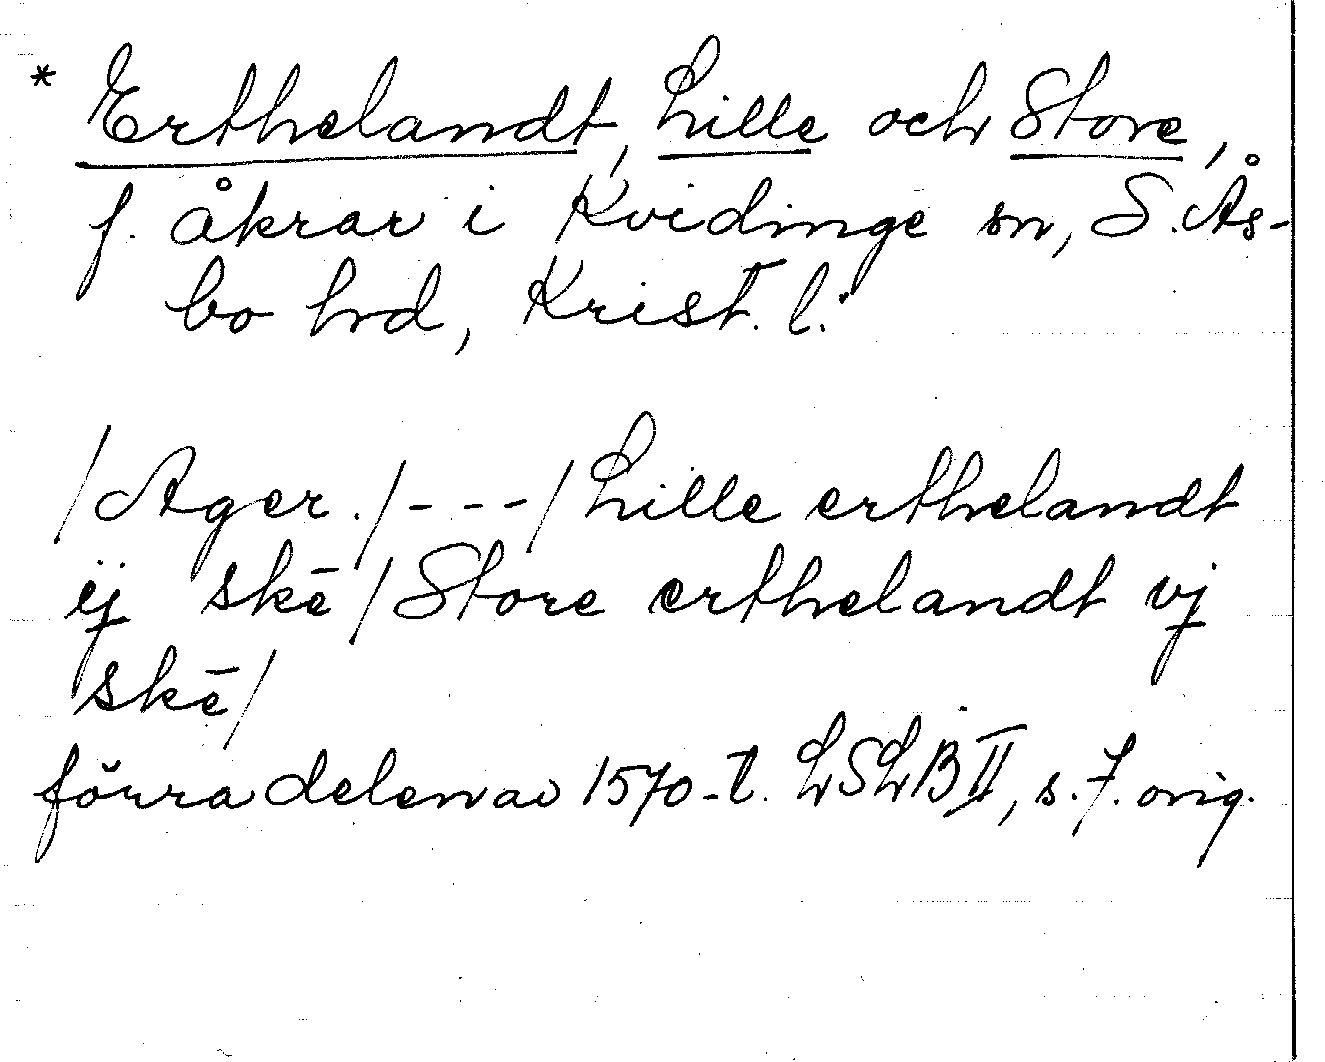 * Erthelandt, Lille och Store,
f. åkrar i Kvidinge sn, S. Ås-
bo hrd, Krist. l.
/Ager./---/Lille erthelandt
ij skē/Store erthelandt vj
skē/
förra delen av 1570-t. LSLB II, s. 7. orig.